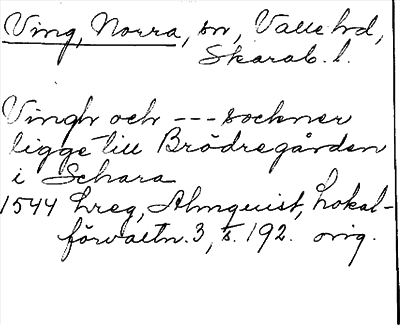 Ving, Norra, sn, Valle hd,
Skarab. l.
Vingh och --- sockner
ligge till Brödregården
i Schara
1544 Lreg, Almquist, Lokal-
förvaltn. 3, s. 192. orig.